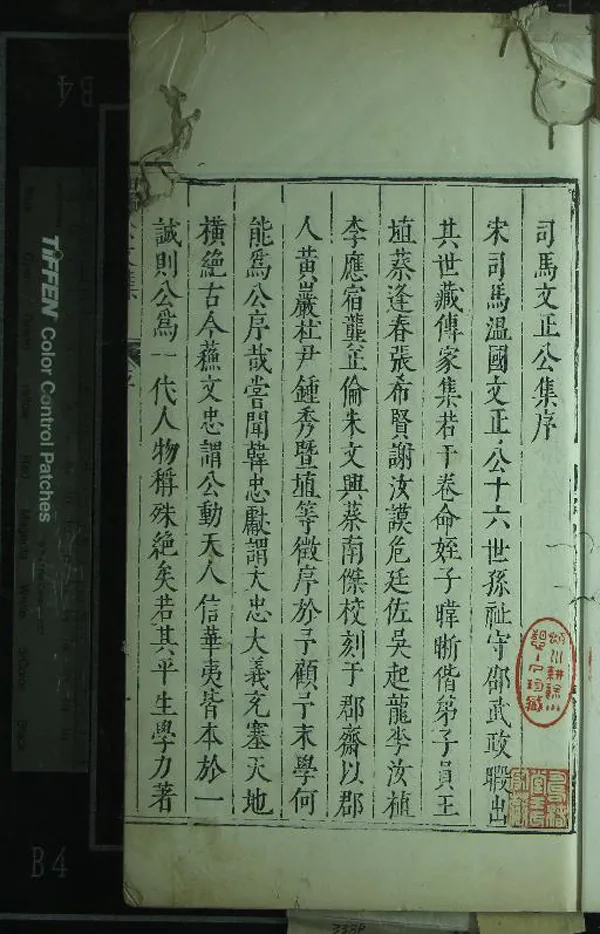 司馬文正公集序
宋司馬溫國文正公十六世孫祉守邵武政暇出
其世藏傳家集若干卷命姪子暐晣偕弟子員王
埴蔡逢春張希賢謝汝謨危廷佐吳起龍李汝植
李應宿龔㱏倫朱文興蔡南傑校刻于郡齋以郡
人黃巖杜尹鍾秀暨埴等徵序於予顧予末學何
能爲公序哉嘗聞韓忠獻謂大忠大義充塞天地
橫絕古今蘇文忠謂公動天人信華夷皆本於一
誠則公爲一代人物稱殊絕矣若其平生學力著
集
TIFFEN Color Control Patches
B4
B4
3338